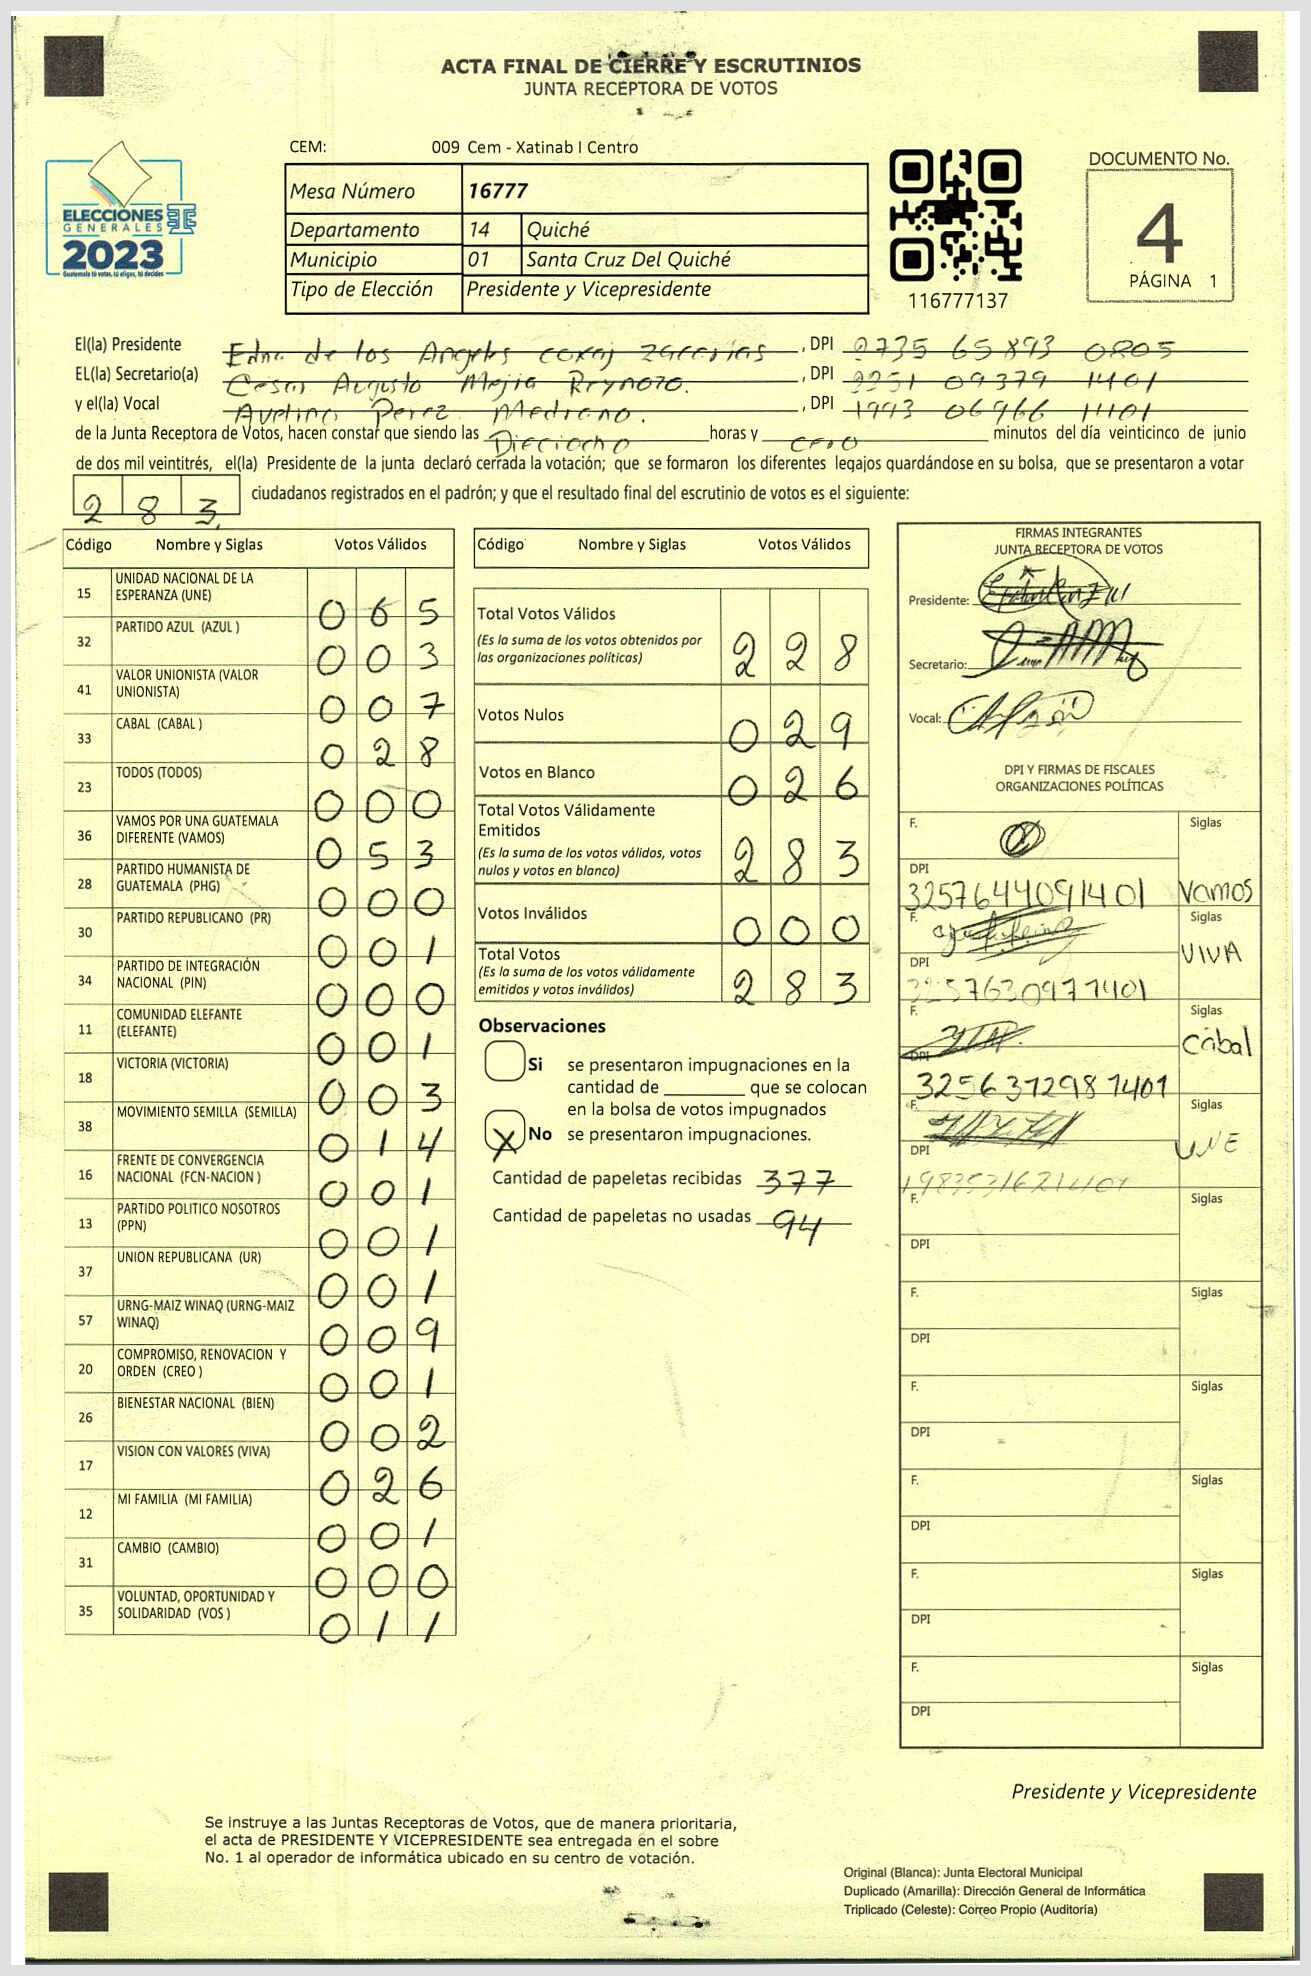 ACTA FINAL DE CIERRE Y ESCRUTINIOS
JUNTA RECEPTORA DE VOTOS
CEM: 009 Cem - Xatinab I Centro
ELECCIONES
GENERALES
2023
Guatemala tú votas, tú eliges, tú decides
Mesa Número 16777
Departamento 14 Quiché
Municipio 01 Santa Cruz Del Quiché
Tipo de Elección Presidente y Vicepresidente
116777137
DOCUMENTO No.
4
PÁGINA 1
El(la) Presidente Edna de los Angeles coxaj zacarias, DPI 2735 65893 0805
EL(la) Secretario(a) Cesar Augusto Mejia Reynozo. , DPI 2251 09379 1401
y el(la) Vocal Avelino Perez Medrano. , DPI 1993 06966 1401
de la Junta Receptora de Votos, hacen constar que siendo las Dieciocho horas y cero minutos del día veinticinco de junio
de dos mil veintitrés, el(la) Presidente de la junta declaró cerrada la votación; que se formaron los diferentes legajos quardándose en su bolsa, que se presentaron a votar
283. ciudadanos registrados en el padrón; y que el resultado final del escrutinio de votos es el siguiente:
Código Nombre y Siglas Votos Válidos
15 UNIDAD NACIONAL DE LA ESPERANZA (UNE) 065
32 PARTIDO AZUL (AZUL ) 003
41 VALOR UNIONISTA (VALOR UNIONISTA) 007
33 CABAL (CABAL ) 028
23 TODOS (TODOS) 000
36 VAMOS POR UNA GUATEMALA DIFERENTE (VAMOS) 053
28 PARTIDO HUMANISTA DE GUATEMALA (PHG) 000
30 PARTIDO REPUBLICANO (PR) 001
34 PARTIDO DE INTEGRACIÓN NACIONAL (PIN) 000
11 COMUNIDAD ELEFANTE (ELEFANTE) 001
18 VICTORIA (VICTORIA) 003
38 MOVIMIENTO SEMILLA (SEMILLA) 014
16 FRENTE DE CONVERGENCIA NACIONAL (FCN-NACION ) 001
13 PARTIDO POLITICO NOSOTROS (PPN) 001
37 UNION REPUBLICANA (UR) 001
57 URNG-MAIZ WINAQ (URNG-MAIZ WINAQ) 009
20 COMPROMISO, RENOVACION Y ORDEN (CREO ) 001
26 BIENESTAR NACIONAL (BIEN) 002
17 VISION CON VALORES (VIVA) 026
12 MI FAMILIA (MI FAMILIA) 001
31 CAMBIO (CAMBIO) 000
35 VOLUNTAD, OPORTUNIDAD Y SOLIDARIDAD (VOS ) 011
Código Nombre y Siglas Votos Válidos
Total Votos Válidos 228
(Es la suma de los votos obtenidos por
las organizaciones politicas)
Votos Nulos 029
Votos en Blanco 026
Total Votos Válidamente
Emitidos 283
(Es la suma de los votos válidos, votos
nulos y votos en blanco)
Votos Inválidos 000
Total Votos 283
(Es la suma de los votos válidamente
emitidos y votos inválidos)
Observaciones
Si se presentaron impugnaciones en la
cantidad de ________ que se colocan
en la bolsa de votos impugnados
X No se presentaron impugnaciones.
Cantidad de papeletas recibidas 377
Cantidad de papeletas no usadas 94
FIRMAS INTEGRANTES
JUNTA RECEPTORA DE VOTOS
Presidente:
Secretario:
Vocal:
DPI Y FIRMAS DE FISCALES
ORGANIZACIONES POLÍTICAS
F. Siglas
DPI
3257644091401 Vamos
F. Siglas
VIVA
DPI
3257630971401
F. Siglas
Cabal
DPI
3256372981401
F. Siglas
UNE
DPI
1983531621401
F. Siglas
DPI
F. Siglas
DPI
F. Siglas
DPI
F. Siglas
DPI
F. Siglas
DPI
F. Siglas
DPI
Presidente y Vicepresidente
Se instruye a las Juntas Receptoras de Votos, que de manera prioritaria,
el acta de PRESIDENTE Y VICEPRESIDENTE sea entregada en el sobre
No. 1 al operador de informática ubicado en su centro de votación.
Original (Blanca): Junta Electoral Municipal
Duplicado (Amarilla): Dirección General de Informática
Triplicado (Celeste): Correo Propio (Auditoría)